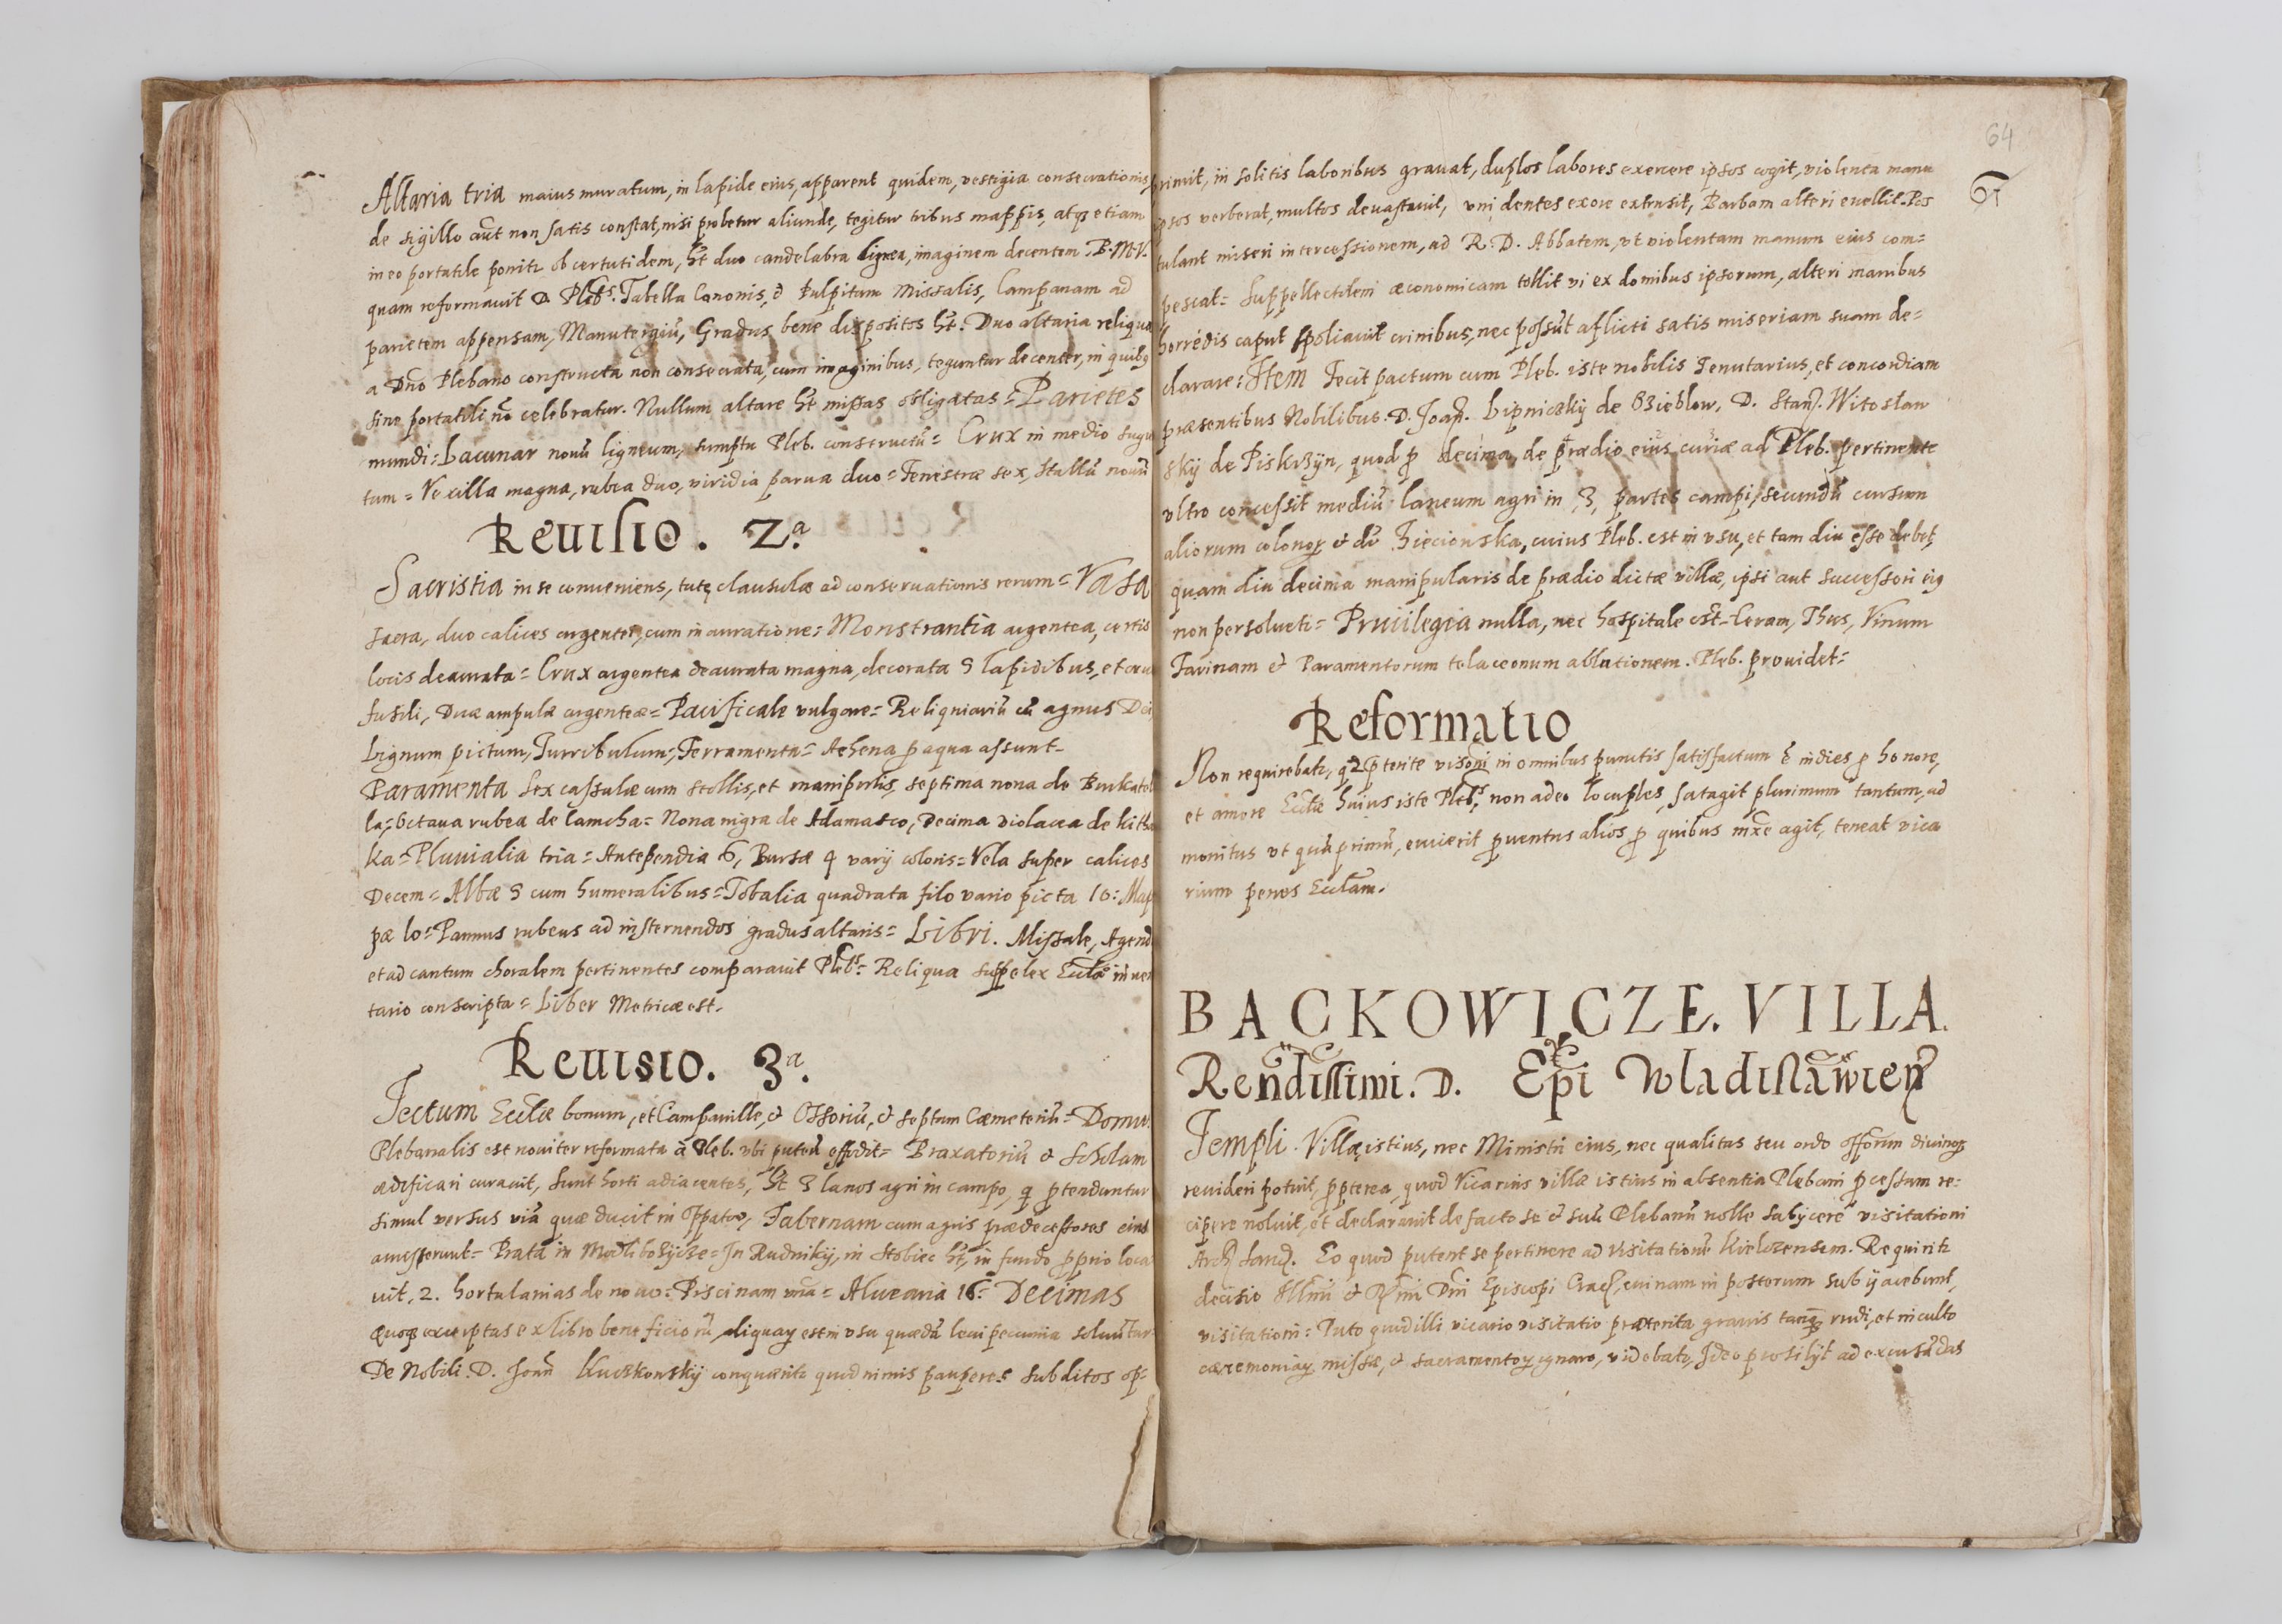 Altaria tria maius muratum, in lapide eius, apparent quidem, vestigia consecrationis,
de sigillo aut non satis constat, nisi probetur aliunde, tegitur tribus mappis, atq3 etiam
in eo portatile ponitr ob certutidem, ht duo candelabra lignea, imaginem decentem B.M.V.
quam reformauit D. Plebs. Tabella Canonis, & Pulpitum Missalis, Campanam ad
parietem appensam, Manutergiū, Gradus bene dispositos ht. Duo altaria reliqua
a Dno Plebano constructa non consecrata, cum imaginibus, teguntur decenter, in quibq
sine portatili no celebratur. Nullum altare ht missas obligatas = Parietes
mundi: Lacunar nouū ligneum, sumptu Pleb. constructū = Crux in medio
tum = Vexilla magna, rubea duo, viridia parua duo = Fenestræ sex, stallū nouū
Reuisio. 2.a
Sacristia in se conueniens, tutę clausulæ ad conseruationis rerum = Vasa
sacra, duo calices argentei, cum inauratione: Monstrantia argentea, certis
locis deaurata = Crux argentea deaurata magna, decorata 9 lapidibus, et
fusili, Duæ ampulæ argenteæ = Pacificale vulgare = Reliquiariū cū agnus Dei
Lignum pictum, Turribulum, Ferramenta = Ahena p aqua assunt
Paramenta Sex cassulæ cum stollis, et manipulis, septima nona de
la, Octaua rubea de Lamcha = Nona nigra de Adamasco, Decima violacea de
ka = Pluuialia tria = Antependia 6, Bursæ 9 varij coloris = Vela super calices
Decem = Albæ 9 cum humeralibus = Tobalia quadrata filo vario picta 10: Map
pæ 10 = Pannus rubeus ad insternendos gradus altaris = Libri. Missale, Agend
et ad cantum choralem pertinentes comparauit Plebs = Reliqua suppelex Ecclæ in
tario conscripta = Liber Metricæ est.
Reuisio. 3a.
Tectum Ecclæ bonum, et Campanille, & Ossoriū, & septum Cæmeteriū = Domus
Plebanalis est nouiter reformata a Pleb. vbi puteū effodit = Braxatoriū & Scholam
ædificari curauit, sunt horti adiacentes, ht 3 lanos agri in campo, q ptenduntur
simul versus viā quæ ducit in Oppatow, Tabernam cum agris prædecessores eius
amisserunt = Prata in = In Rudnikij, in Stobiec ht, in fundo pprio loca
uit. 2. hortulanias de nouo = Piscinam vnā = Aluearia 16 = Decimas
Quoq3 excerptas ex libro beneficiorū, est in vsu quædā leui pecunia soluūtur
De Nobili. D. Joan Kuczkowskij conqueritr quod nimis pauperes subditos op=
64
61
rimit, in solitis laboribus grauat, duplos labores exercere ipsos cogit, violenta manu
ipsos verberat, multos deuastauit, vni dentes ex ore extrusit, Barbam alteri euellit. Pos
tulant miseri intercessionem, ad R. D. Abbatem, vt violentam manum eius com=
pescat = Suppellectilem œconomicam tollit vi ex domibus ipsorum, alteri manibus
horrēdis caput spoliauit crinibus, nec possūt aflicti satis miseriam suam de=
clarare: Item Fecit pactum cum Pleb. iste nobilis Tenutarius, et concordiam
præsentibus Nobilibus. D. Joan. Lipniczkij de Bzieblow, D. Stan. Witosław
skij de Piskrzyn, quod p decima, de prædio eius curiæ ad Pleb. pertinente
vltro concessit mediū laneum agri in 3, partes campi, secundū cursum
aliorum colonor & dr Zieciowska, cuius Pleb. est in vsu, et tam diu esse debet,
quam diu decima manipularis de prædio dictæ villæ, ipsi aut successori eiq
non persoluetr = Priuilegia nulla, nec hospitale est = Ceram, Thus, Vinum
Farinam & Paramentorum telaceorum ablutionem. Pleb. prouidet =
Reformatio
Non requirebatr, q2 pterite visoni in omnibus punctis satisfactum ē indies p honore,
et amore Ecclæ huius iste Plebs, non adeo locuples, satagit plurimum tantum, ad
monitus vt quā primū, euicerit puentus alios p quibus mxe agit, teneat vica
rium penes Ecclam.
BACKOWICZE. VILLA.
Rendissimi. D. Epi Wladislawien
Templi. Villæ istius, nec Ministri eius, nec qualitas seu ordo offorum diuinor
reuideri potuit, ppterea, quod Vicarius villæ istius in absentia Plebani pcessum re=
cipere noluit, et declarauit de facto se & suū Plebanū nolle subijcere visitationi
Arch Sand. Eo quod putent se pertinere ad visitationē Kielczensem. Requiritr
decisio Illmi & Rmi Dni Episcopi Crac, cuinam in postorum subijacebunt,
visitationi: Puto quod illi vicario visitatio præterita grauis tanq rudi, et inculto
cæremoniar missæ, & sacramentor ignaro, videbatr, Ideo prosilijt ad excusādas